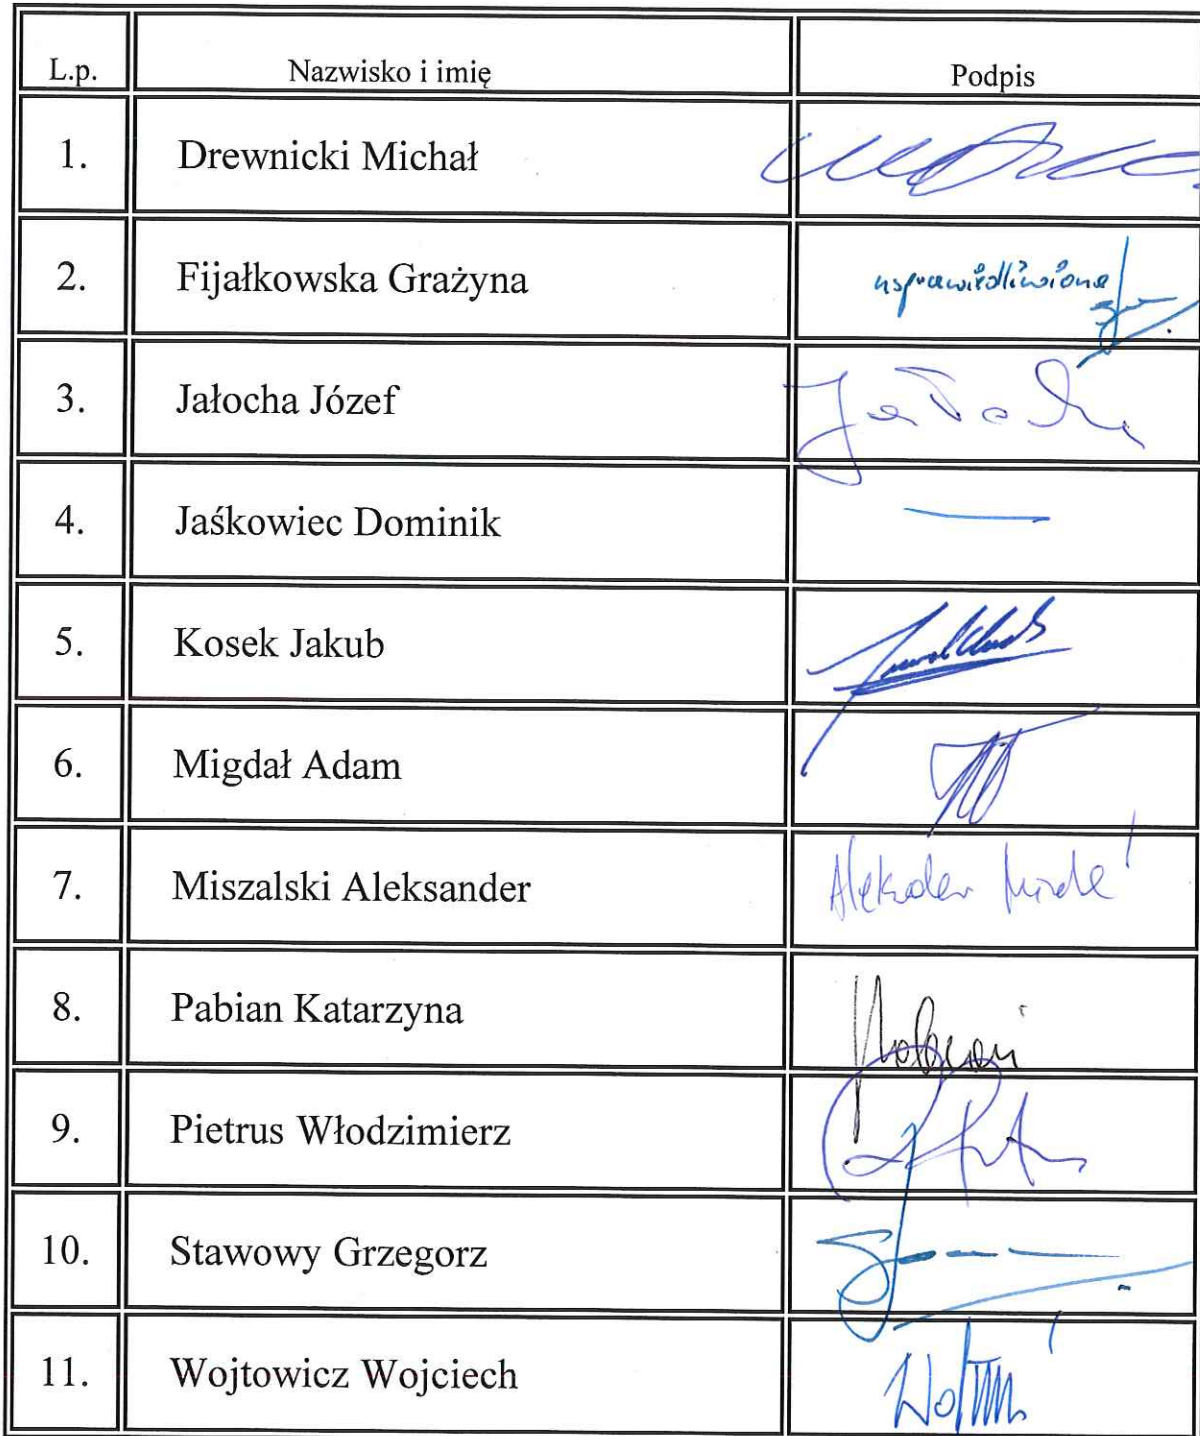 L.p. Nazwisko i imię Podpis
1. Drewnicki Michał
2. Fijałkowska Grażyna usprawiedliwiona
3. Jałocha Józef Jałocha
4. Jaśkowiec Dominik —
5. Kosek Jakub
6. Migdał Adam
7. Miszalski Aleksander
8. Pabian Katarzyna
9. Pietrus Włodzimierz
10. Stawowy Grzegorz
11. Wojtowicz Wojciech